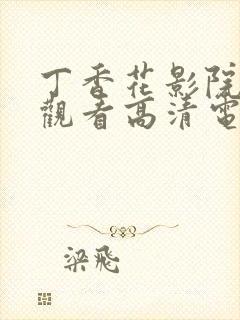 丁香花影院
觀看高清電
梁飛